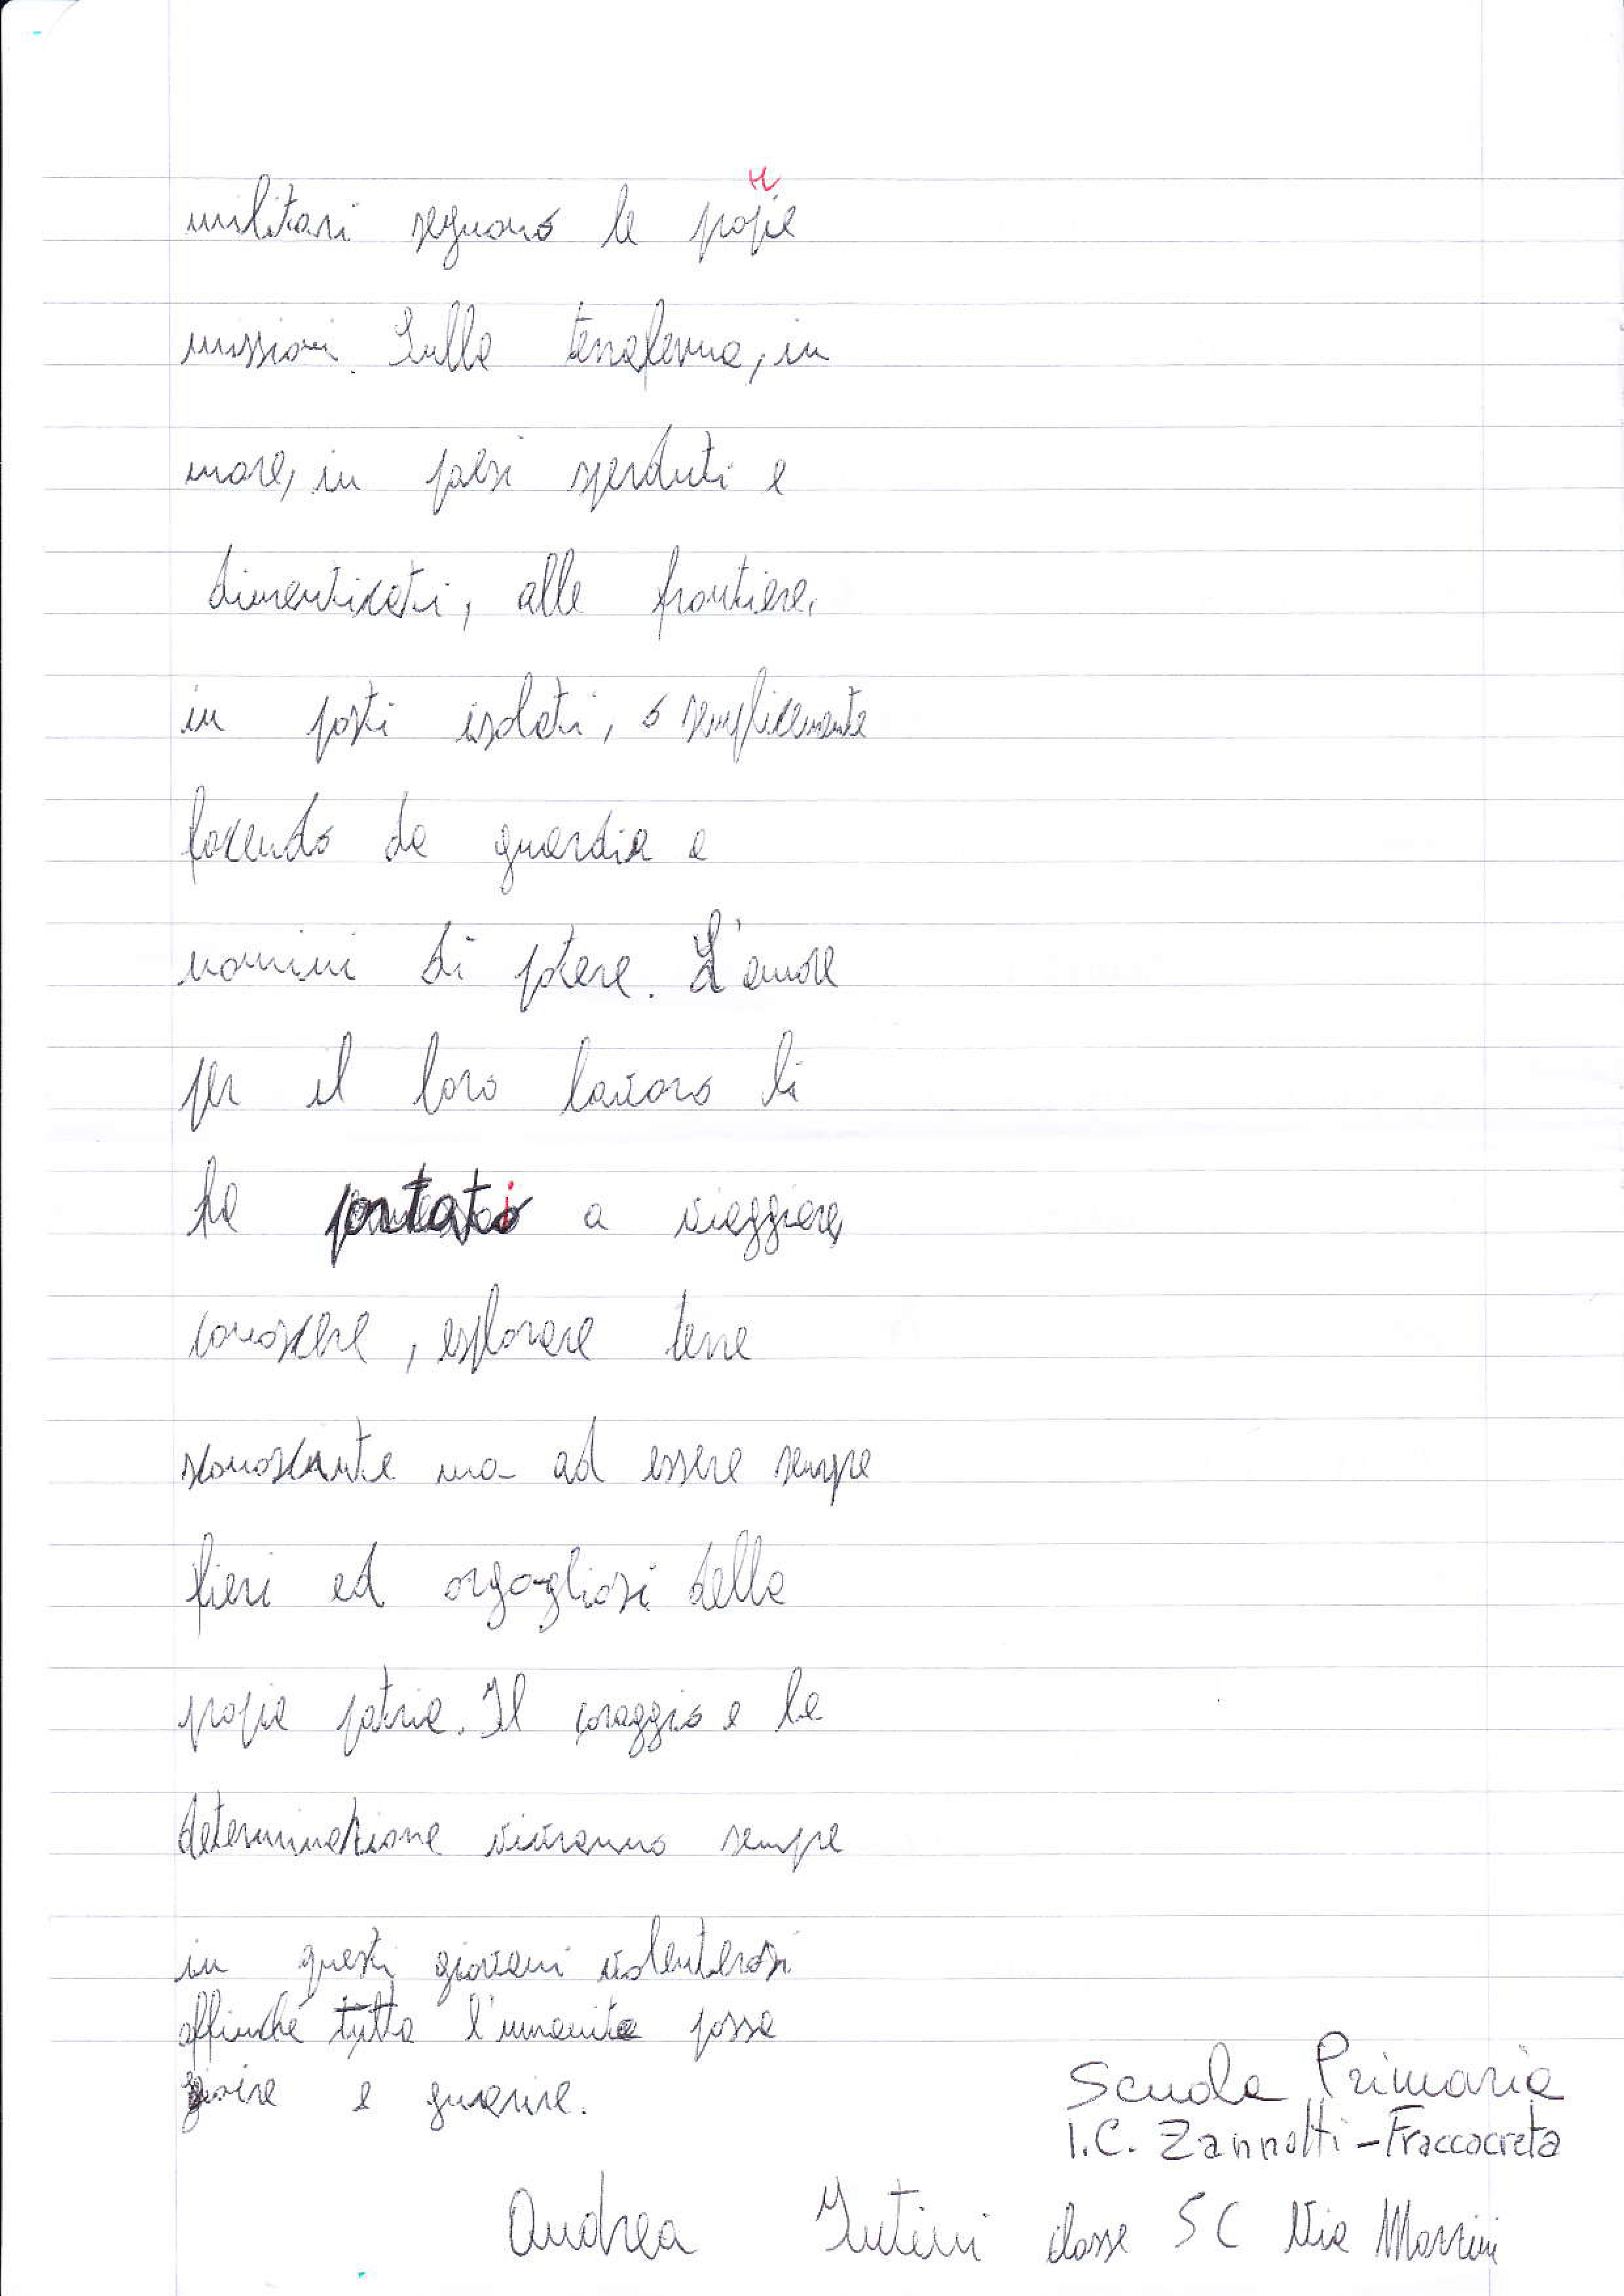 militari seguono le propie
missioni. Sulla terraferma, in
mare, in paesi sperduti e
dimenticati, alle frontiere,
in posti isolati, o semplicemente
facendo da guardia a
uomini di potere. L'amore
per il loro lavoro li
ha portati a viaggiare,
conoscere, esplorare terre
sconosciute ma ad essere sempre
fieri ed orgogliosi della
propia patria. Il coraggio e la
determinazione vivranno sempre
in questi giovani volenterosi
affinché tutta l'umanità possa
gioire e guarire.
Scuola Primaria
I.C. Zannotti - Fraccacreta
Andrea Iutini classe 5 C Via Mazzini